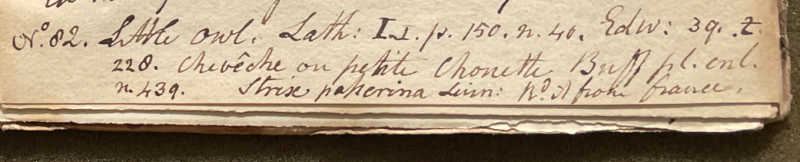 No. 82. Little owl. Lath: I.I. p. 150. n. 40. Edw: 39. t.
228. Chevêche ou petite Chouette Buff pl. enl.
n. 439. Strix passerina Linn: No. 31 from france.